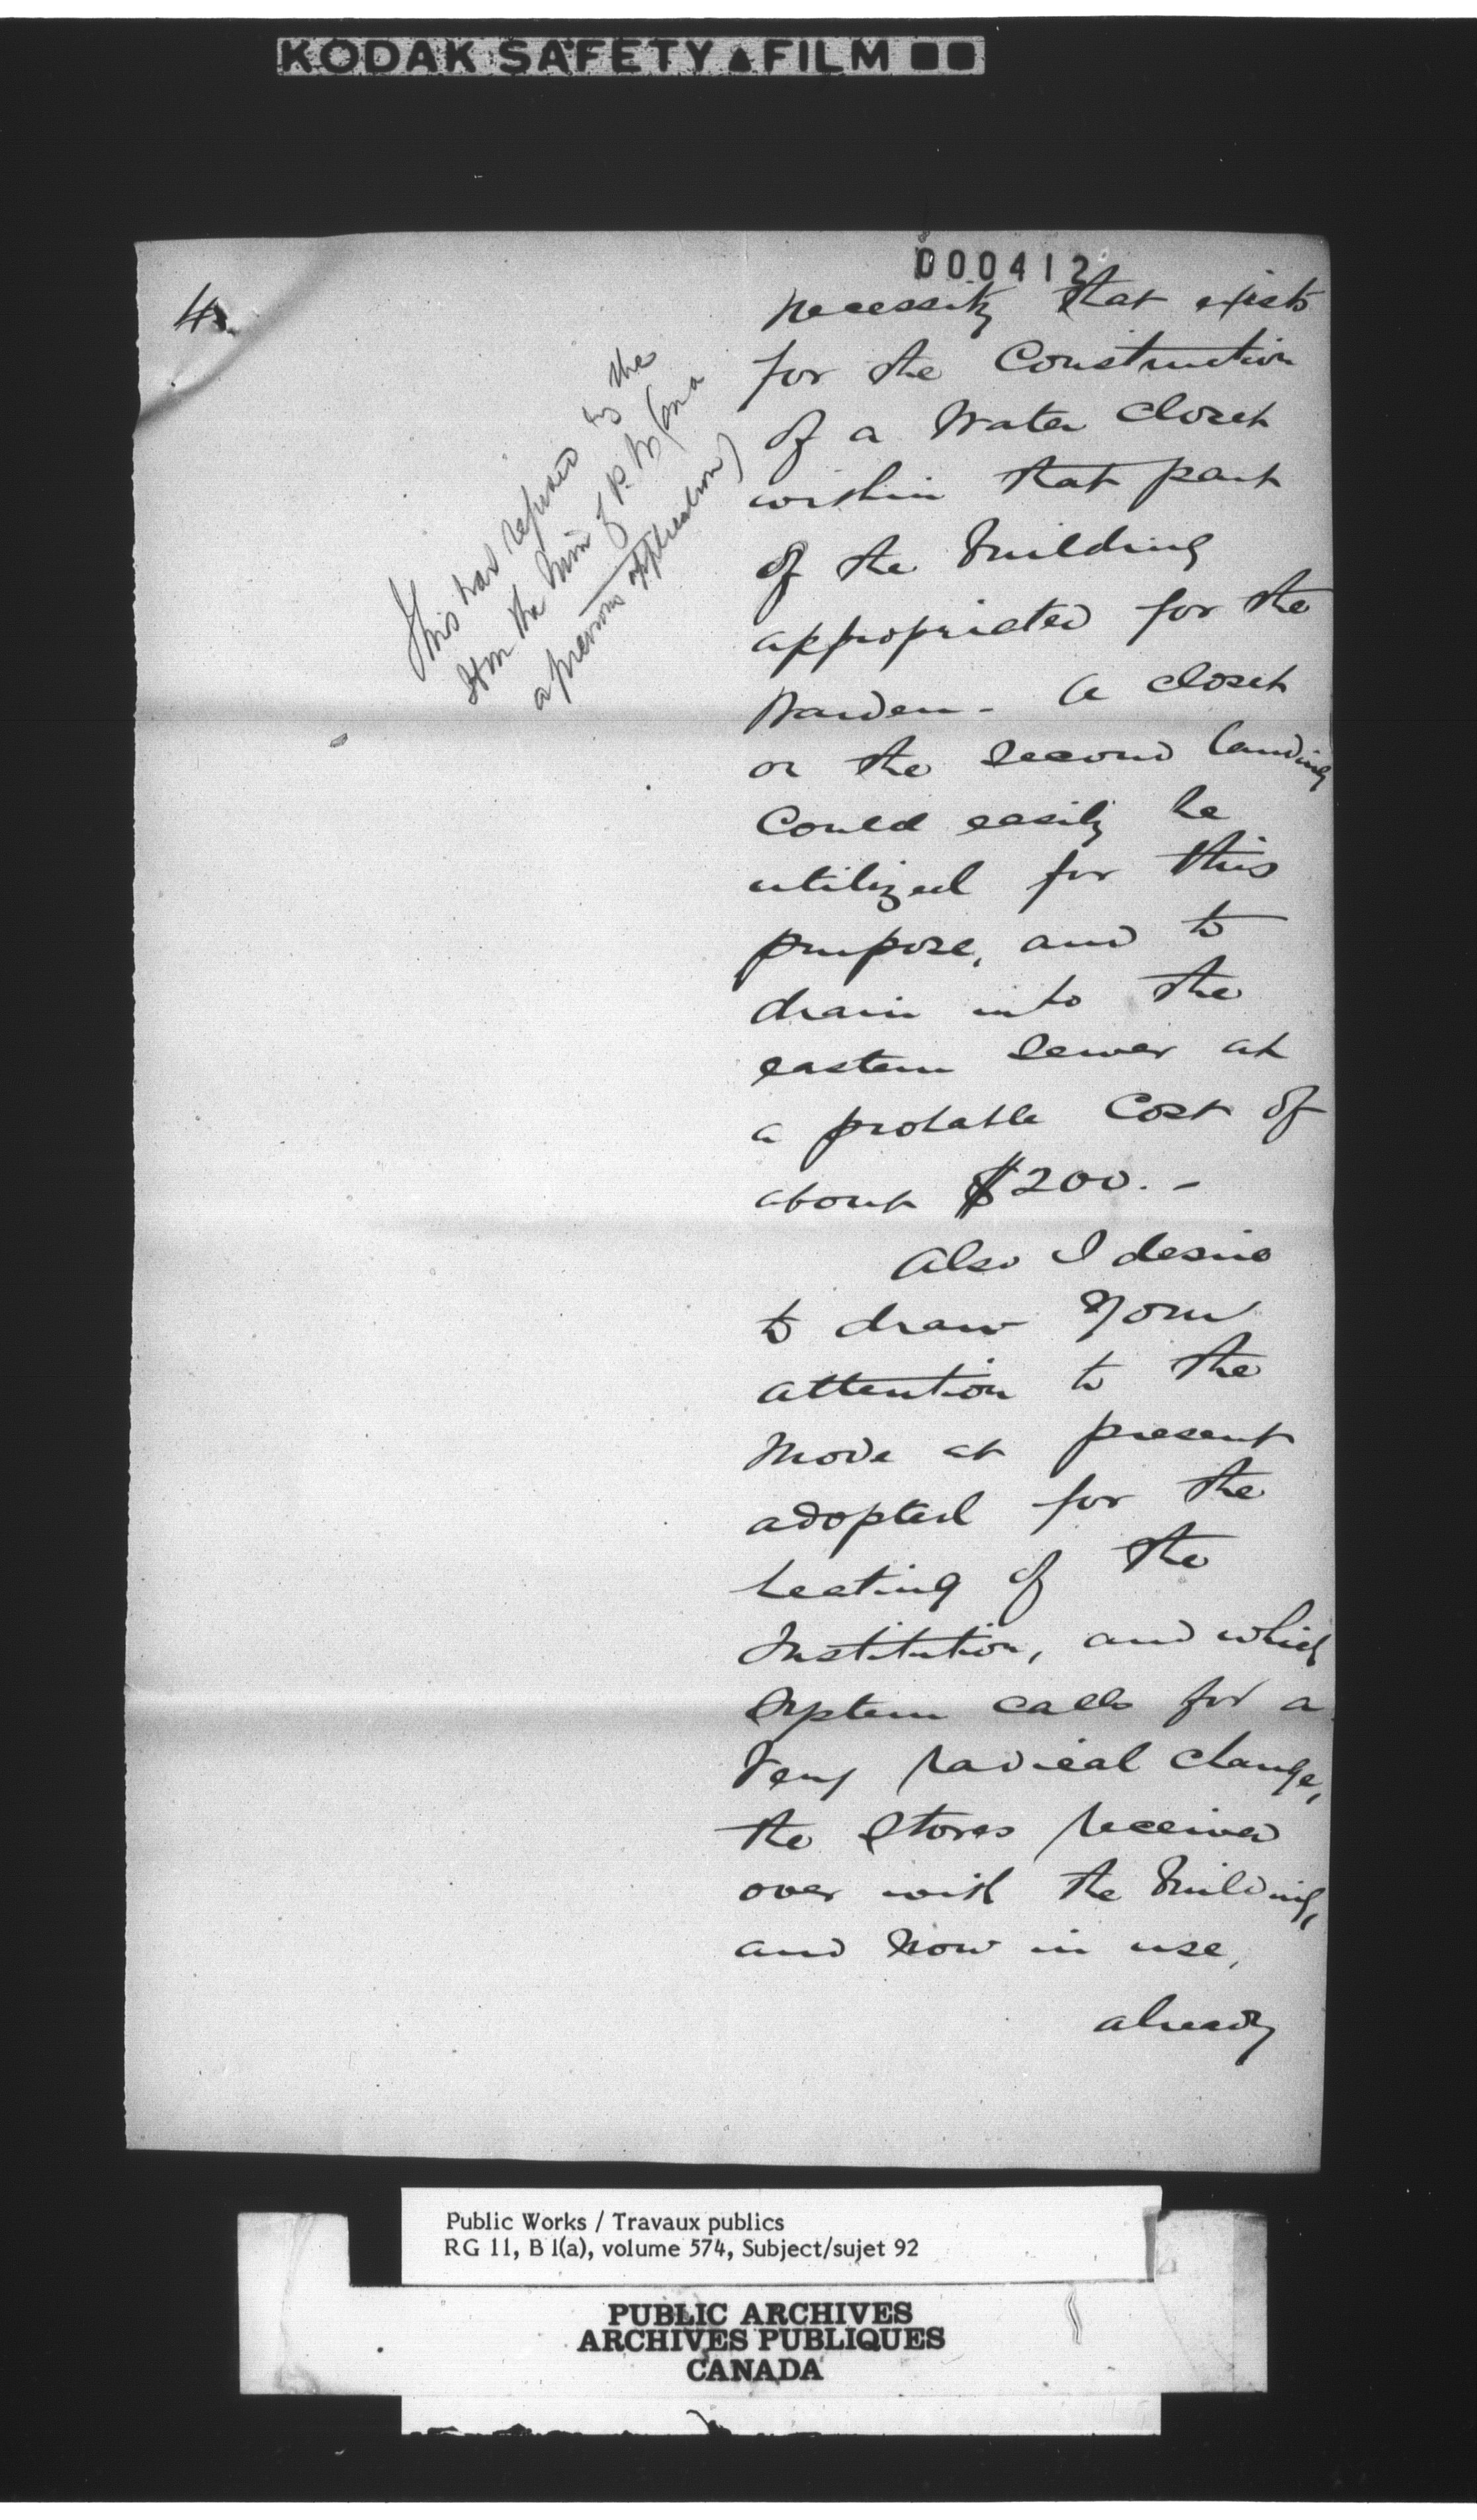 KODAK SAFETY FILM
000412
4.
This was refused by the
Hon the Min of P. W (on a
a previous application)
necessity that exists
for the Construction
of a Water Closet
within that part
of the Building
appropriated for the
Warden - A closet
on the second landing
Could easily be
utilized for this
purpose, and to
drain into the
eastern Sewer at
a probable Cost of
about $200. -
Also I desire
to draw Your
attention to the
Mode at present
adopted for the
heating of the
Institution, and which
System calls for a
Very radical change,
the Stoves received
over with the Building,
and Now in use,
already
Public Works / Travaux publics
RG 11, B 1(a), volume 574, Subject/sujet 92
PUBLIC ARCHIVES
ARCHIVES PUBLIQUES
CANADA